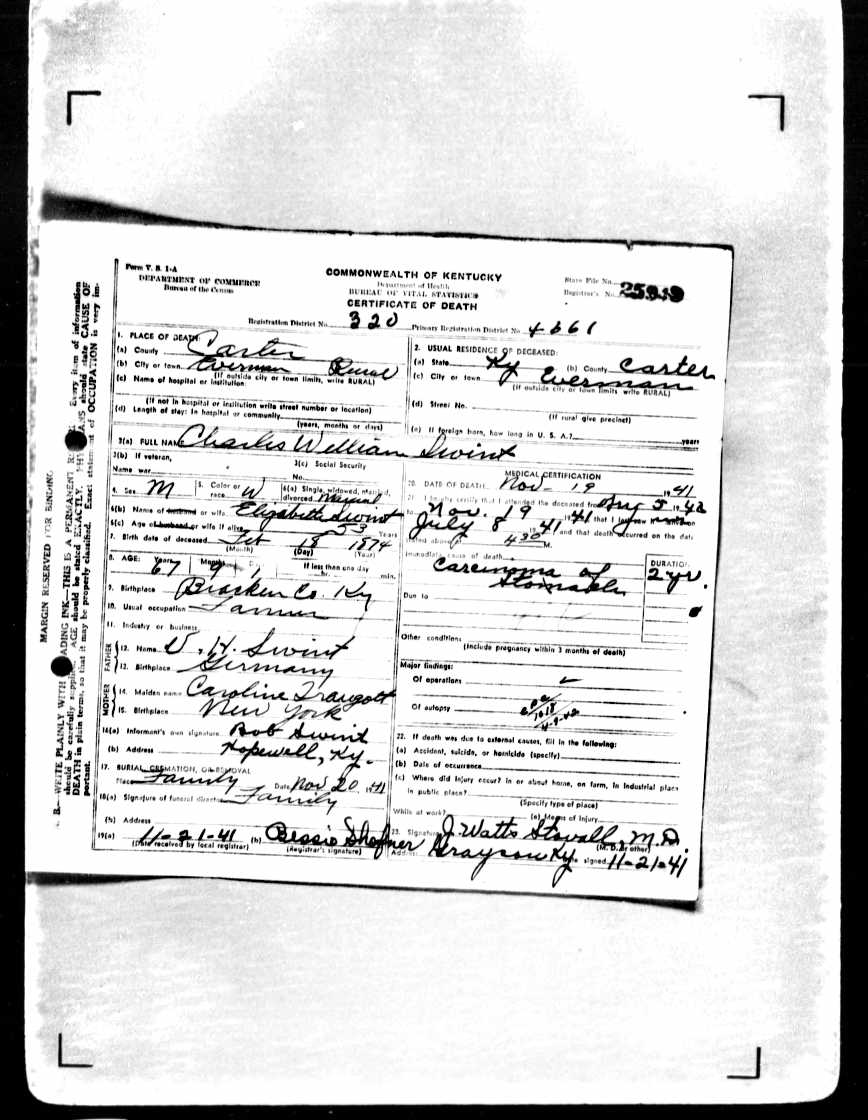 Form V. S. 1-A
DEPARTMENT OF COMMERCE
Bureau of the Census
COMMONWEALTH OF KENTUCKY
Department of Health
BUREAU OF VITAL STATISTICS
CERTIFICATE OF DEATH
State File No.
Registrar's No.
Registration District No. 320 Primary Registration District No. 4661
1. PLACE OF DEATH:
(a) County Carter
(b) City or town Everman Rural
(If outside city or town limits, write RURAL)
(c) Name of hospital or institution:
(If not in hospital or institution write street number or location)
(d) Length of stay: In hospital or community
(years, months or days)
2. USUAL RESIDENCE OF DECEASED:
(a) State Ky (b) County Carter
(c) City or town Everman
(If outside city or town limits write RURAL)
(d) Street No.
(If rural give precinct)
(e) If foreign born, how long in U. S. A.? years
3(a) FULL NAME Charles William Swint
3(b) If veteran,
Name war
3(c) Social Security
No.
4. Sex M 5. Color or race W 6(a) Single, widowed, married, divorced Married
6(b) Name of husband or wife Elizabeth Swint
6(c) Age of husband or wife if alive 53 Years
7. Birth date of deceased Feb 18 1874
(Month) (Day) (Year)
8. AGE: Years 67 Months 9 1 If less than one day
hr. min.
9. Birthplace Bracken Co. Ky
10. Usual occupation Farmer
11. Industry or business
FATHER
12. Name V. H. Swint
13. Birthplace Germany
MOTHER
14. Maiden name Caroline Traugott
15. Birthplace New York
16(a) Informant's own signature Bob Swint
(b) Address Hopewell, Ky.
17. BURIAL, CREMATION, OR REMOVAL
Place Family Date Nov 20 1941
18(a) Signature of funeral director Family
(b) Address
19(a) 11-21-41 (b) Bessie Shaffner
(Date received by local registrar) (Registrar's signature)
MEDICAL CERTIFICATION
20. DATE OF DEATH Nov - 19 1941
21. I hereby certify that I attended the deceased from Aug 5, 19
to Nov. 19 1941 that I last saw
July 8 1941 and that death occurred on the date
stated above at 430 M.
Immediate cause of death
Carcinoma of
Stomach
DURATION
2 yr.
Due to
Other conditions
(Include pregnancy within 3 months of death)
Major findings:
Of operations
Of autopsy
22. If death was due to external causes, fill in the following:
(a) Accident, suicide, or homicide (specify)
(b) Date of occurrence
(c) Where did injury occur? in or about home, on farm, in industrial place
in public place?
(Specify type of place)
While at work? (e) Means of injury
23. Signature J. Watts Stovall, M.D.
(M. D. or other)
Address Grayson Ky Date signed 11-21-41
MARGIN RESERVED FOR BINDING
B.—WRITE PLAINLY WITH UNFADING INK—THIS IS A PERMANENT Every item of information
should be carefully supplied. AGE should be stated EXACTLY. PHYSICIANS should state CAUSE OF
DEATH in plain terms, so that it may be properly classified. Exact statement of OCCUPATION is very im-
portant.